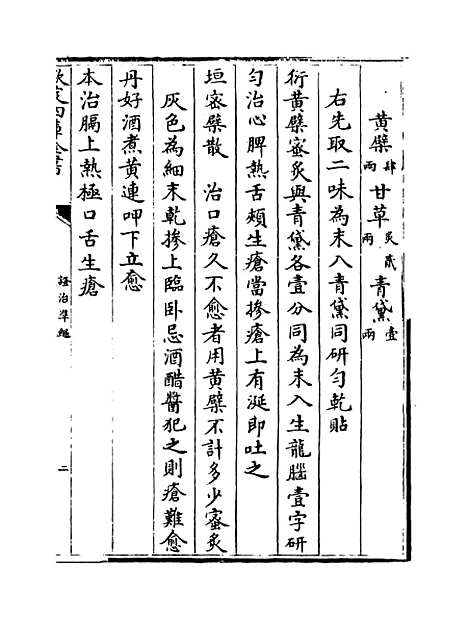 黄蘗肆兩 甘草炙貳兩 青黛壹兩
右先取二味為末入青黛同研勻乾貼
衍黄蘗蜜炙與青黛各壹分同為末入生龍腦壹字研
勻治心脾熱舌頰生瘡當摻瘡上有涎即吐之
垣蜜蘗散 治口瘡久不愈者用黄蘗不計多少蜜炙
灰色為細末乾摻上臨卧忌酒醋醬犯之則瘡難愈
丹好酒煮黄連呷下立愈
本治膈上熱極口舌生瘡
欽定四庫全書
證治準繩
二